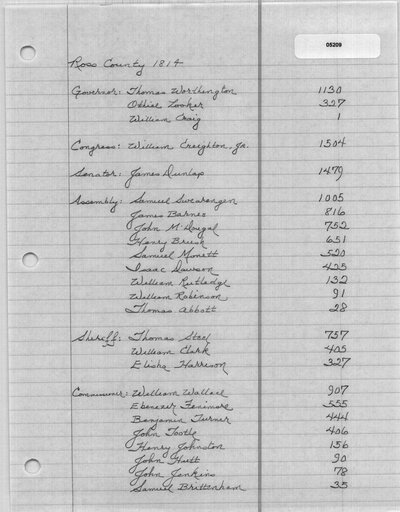 05209
Ross County 1814
Governor: Thomas Worthington 1130
Othiel Looker 327
William Craig 1
Congress: William Creighton, Jr. 1504
Senator: James Dunlap 1479
Assembly: Samuel Swearengen 1005
James Barnes 816
John M'Dougal 752
Henry Brush 651
Samuel Monett 520
Isaac Dawson 425
William Rutledge 132
William Robinson 91
Thomas Abbott 28
Sheriff: Thomas Steel 757
William Clark 405
Elisha Harrison 327
Commissioner: William Wallace 907
Ebenezer Fenimore 555
Benjamin Turner 444
John Tootle 406
Henry Johnston 156
John Hutt 90
John Jenkins 78
Samuel Brittenham 35